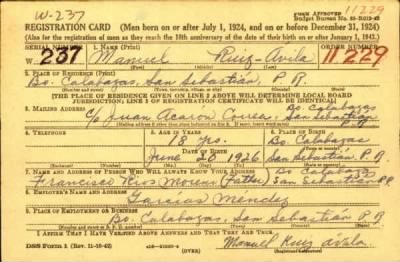 W-237
11229
FORM APPROVED
Budget Bureau No.
REGISTRATION CARD (Men born on or after July 1, 1924, and on or before December 31, 1924)
(Also for the registration of men as they reach the 18th anniversary of the date of their birth on or after January 1, 1943.)
SERIAL NUMBER 1. NAME (Print) ORDER NUMBER
W 237 Manuel Ruiz-Avila 11229
(First) (Middle) (Last)
2. PLACE OF RESIDENCE (Print)
Bo. Calabazas, San Sebastián, P. R.
[THE PLACE OF RESIDENCE GIVEN ON LINE 2 ABOVE WILL DETERMINE LOCAL BOARD
JURISDICTION; LINE 2 OF REGISTRATION CERTIFICATE WILL BE IDENTICAL]
3. MAILING ADDRESS Bo. Calabazas
c/o Juan Acaron San Sebastian
4. TELEPHONE 5. AGE IN YEARS 6. PLACE OF BIRTH
18 yrs. Bo. Calabazas
DATE OF BIRTH
June 20 1926 San Sebastian P R
7. NAME AND ADDRESS OF PERSON WHO WILL ALWAYS KNOW YOUR ADDRESS Bo Calabazas
Francisco Moreno (Father) San Sebastian P.R.
8. EMPLOYER'S NAME AND ADDRESS
Méndez
9. PLACE OF EMPLOYMENT OR BUSINESS
Bo. Calabazas, San Sebastián P R
I AFFIRM THAT I HAVE VERIFIED ABOVE ANSWERS AND THAT THEY ARE TRUE.
DSS Form 1 (Rev. 11-16-42) (OVER) Manuel Ruiz Avila